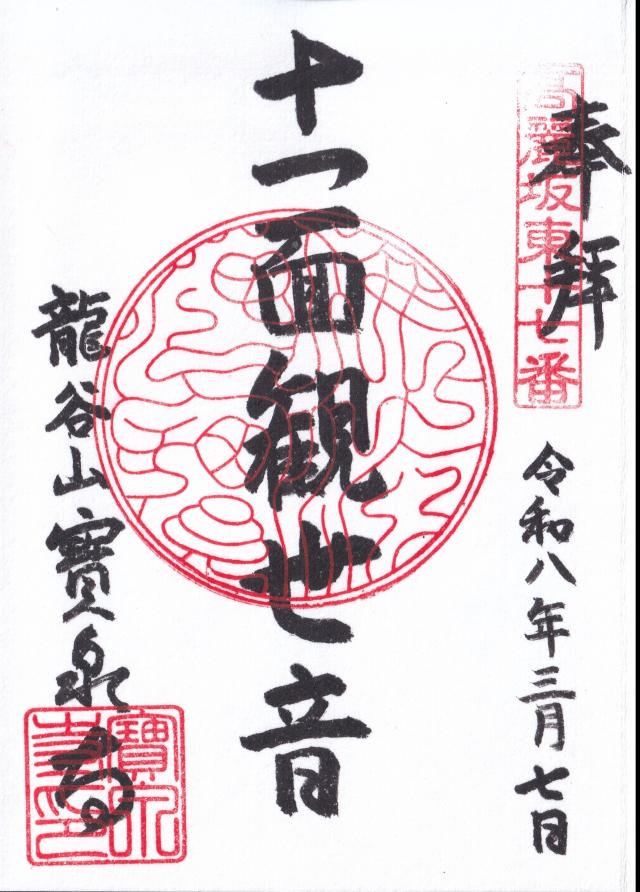 奉拝
高麗坂東十七番
令和八年三月七日
十一面観世音
龍谷山寶泉寺
寶泉寺印